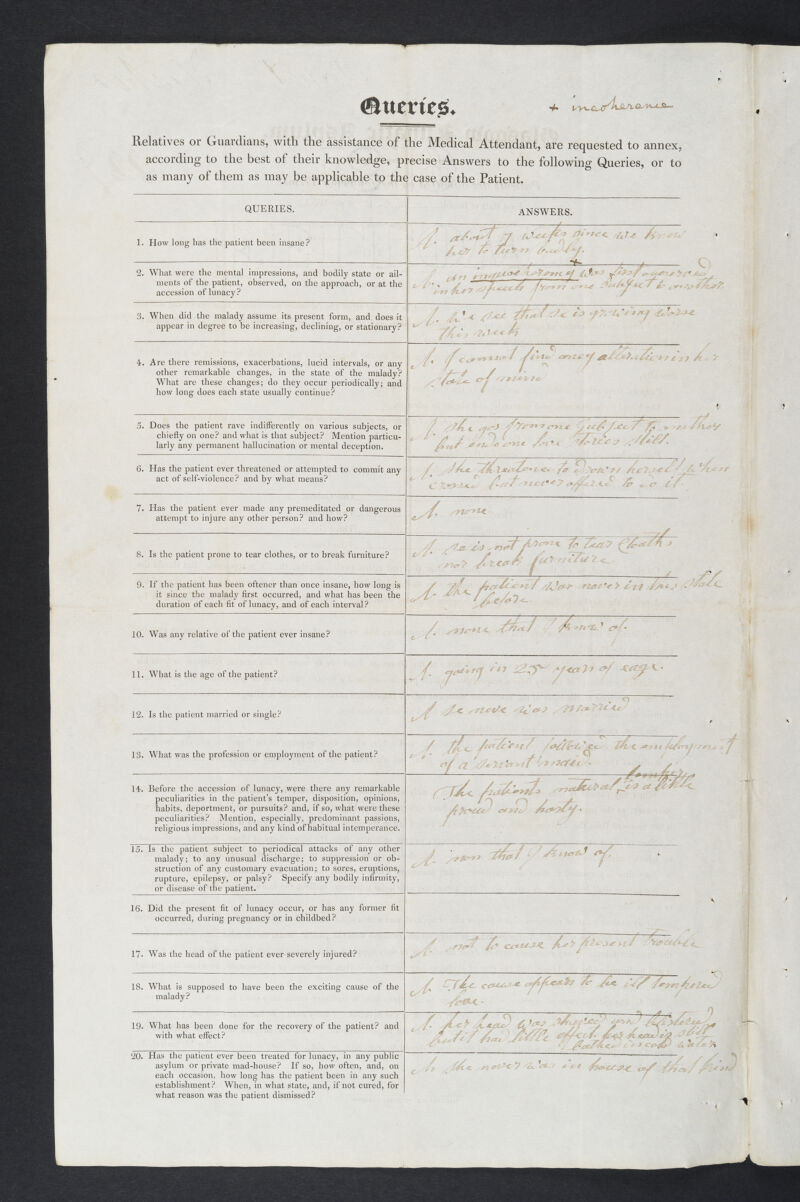 Queries.
+ incoherance
Relatives or Guardians, with the assistance of the Medical Attendant, are requested to annex,
according to the best of their knowledge, precise Answers to the following Queries, or to
as many of them as may be applicable to the case of the Patient.
QUERIES.
ANSWERS.
1. How long has the patient been insane?
A. about 7 weeks since we know
her to turn badly.
2. What were the mental impressions, and bodily state or ail-
ments of the patient, observed, on the approach, or at the
accession of lunacy?
+
A. an was first
in her speech from one subject to another
3. When did the malady assume its present form, and does it
appear in degree to be increasing, declining, or stationary?
A. We see that se is growing worse
this week
4. Are there remissions, exacerbations, lucid intervals, or any
other remarkable changes, in the state of the malady?
What are these changes; do they occur periodically; and
how long does each state usually continue?
A. I cannot find aney alteration in her
state of mind
5. Does the patient rave indifferently on various subjects, or
chiefly on one? and what is that subject? Mention particu-
larly any permanent hallucination or mental deception.
A. she gos from one subject to another
but love stories still.
6. Has the patient ever threatened or attempted to commit any
act of self-violence? and by what means?
A. she threatened to drown herself when
but never offered to do it.
7. Has the patient ever made any premeditated or dangerous
attempt to injure any other person? and how?
A. none
8. Is the patient prone to tear clothes, or to break furniture?
A. se is not prone to tear Cloaths
nor break furniture
9. If the patient has been oftener than once insane, how long is
it since the malady first occurred, and what has been the
duration of each fit of lunacy, and of each interval?
A. the patient was never in this state
before
10. Was any relative of the patient ever insane?
A. none that I know of.
11. What is the age of the patient?
A. going in 25 years of eage.
12. Is the patient married or single?
A se neve was married
13. What was the profession or employment of the patient?
A. the patient followed the employment
of a servant maid.
14. Before the accession of lunacy, were there any remarkable
peculiarities in the patient's temper, disposition, opinions,
habits, deportment, or pursuits? and, if so, what were these
peculiarities? Mention, especially, predominant passions,
religious impressions, and any kind of habitual intemperance.
temper
The patients natural is a little
proud and hasty.
15. Is the patient subject to periodical attacks of any other
malady; to any unusual discharge; to suppression or ob-
struction of any customary evacuation; to sores, eruptions,
rupture, epilepsy, or palsy? Specify any bodily infirmity,
or disease of the patient.
A. non that I know of.
16. Did the present fit of lunacy occur, or has any former fit
occurred, during pregnancy or in childbed?
17. Was the head of the patient ever severely injured?
A. not to cause her present trouble
18. What is supposed to have been the exciting cause of the
malady?
A. The cause appears to be ill tempered
love.
19. What has been done for the recovery of the patient? and
with what effect?
A. her head was shaved and blistered
but it had little effect. her head is still
bathed in cold water
20. Has the patient ever been treated for lunacy, in any public
asylum or private mad-house? If so, how often, and, on
each occasion, how long has the patient been in any such
establishment? When, in what state, and, if not cured, for
what reason was the patient dismissed?
A. she never was in house of that kind